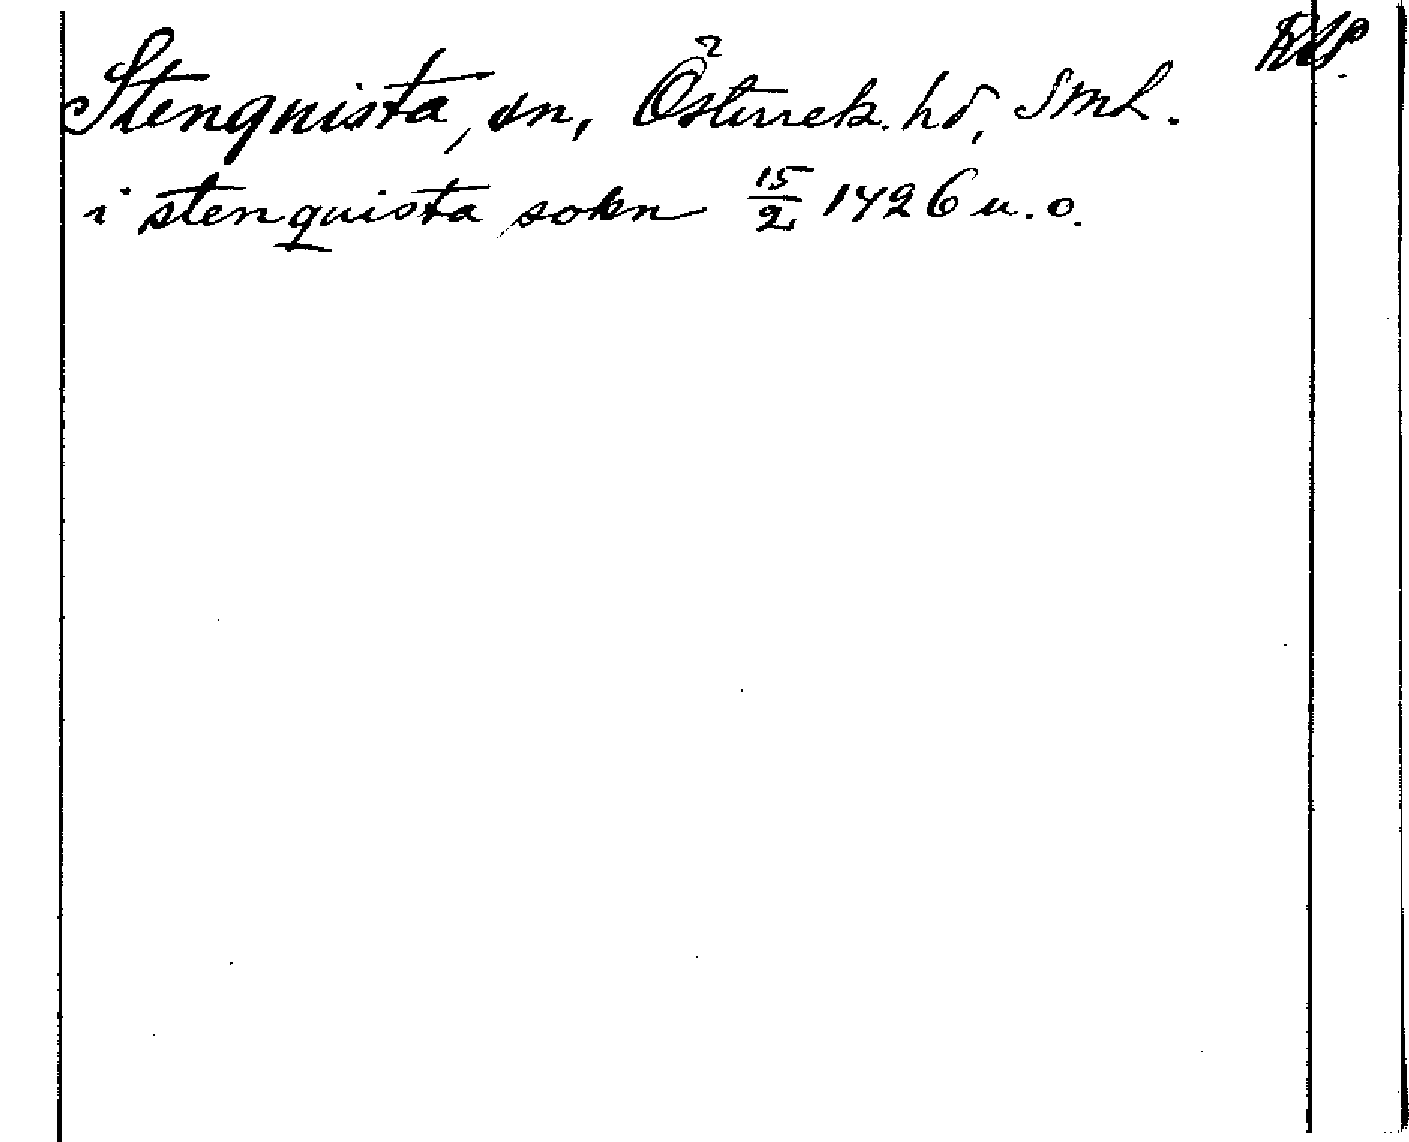 Stenqvista, sn, Österrek. hd, Sml.
i stenquista sokn 15/2 1426 u. o.